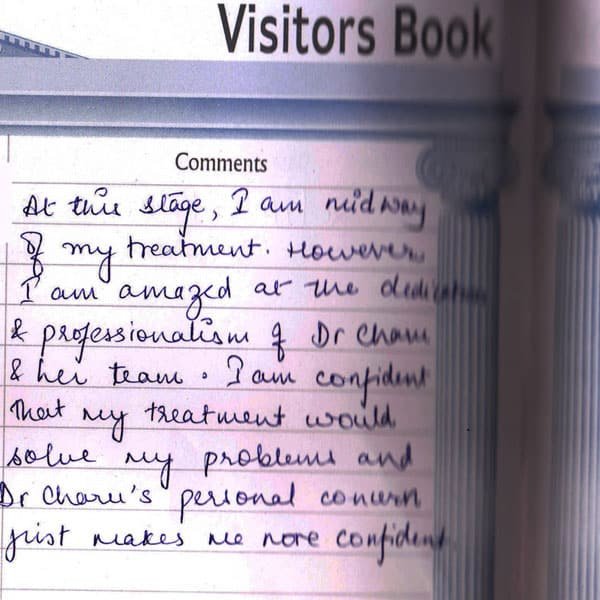 Visitors Book
Comments
At this stage, I am midway
of my treatment. However
I am amazed at the dedication
& professionalism of Dr Charu
& her team. I am confident
that my treatment would
solve my problems and
Dr Charu's personal concern
just makes me more confident